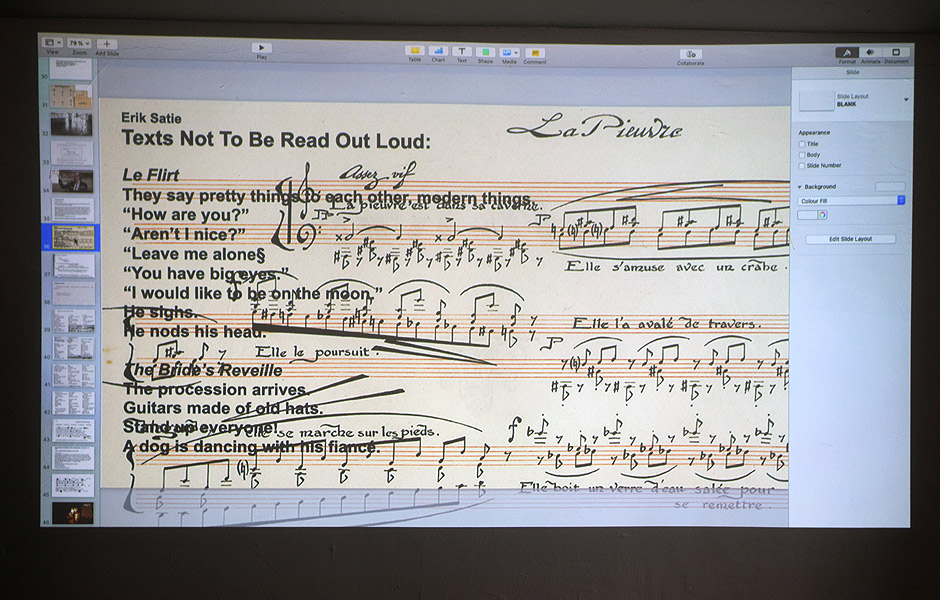 View
79%
Zoom
Add Slide
Play
Table
Chart
Text
Shape
Media
Comment
Collaborate
Format
Animate
Document
Slide
Slide Layout
BLANK
Appearance
Title
Body
Slide Number
Background
Colour Fill
Edit Slide Layout
30
31
32
33
34
35
36
37
38
39
40
41
42
43
44
45
46
Erik Satie
Texts Not To Be Read Out Loud:
Le Flirt
They say pretty things to each other, modern things.
“How are you?”
“Aren’t I nice?”
“Leave me alone§
“You have big eyes.”
“I would like to be on the moon.”
He sighs.
He nods his head.
The Bride’s Reveille
The procession arrives.
Guitars made of old hats.
Stand up everyone!
A dog is dancing with his fiancé.
La Pieuvre
Assez vif
La pieuvre est dans sa caverne.
Elle s'amuse avec un crabe.
Elle le poursuit.
Elle l'a avalé de travers.
elle se marche sur les pieds.
f
Elle boit un verre d'eau salée pour
se remettre.